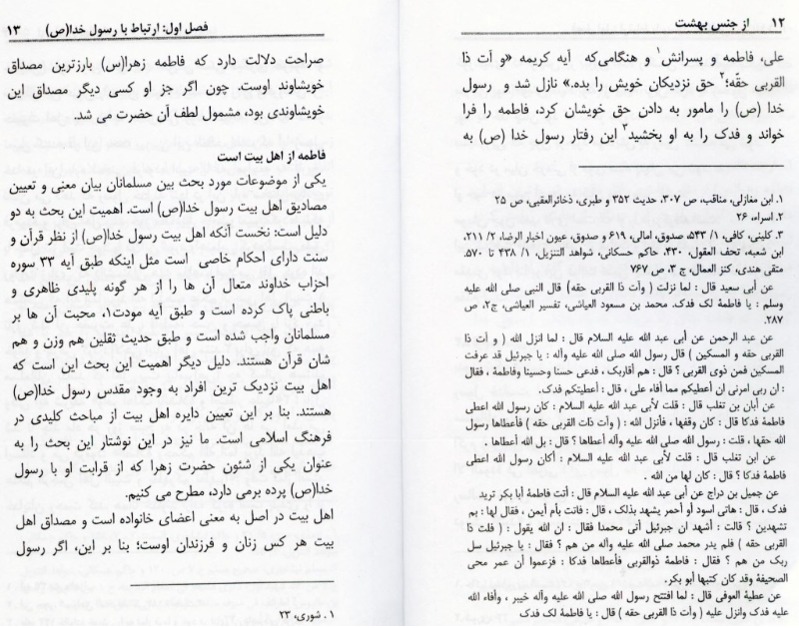 ۱۲ از جنس بهشت
علی، فاطمه و پسرانش۱ و هنگامی‌که آیه کریمه «و آت ذا
القربی حقّه؛۲ حق نزدیکان خویش را بده.» نازل شد و رسول
خدا (ص) را مامور به دادن حق خویشان کرد، فاطمه را فرا
خواند و فدک را به او بخشید۳ این رفتار رسول خدا (ص) به
۱. ابن مغازلی، مناقب، ص ۳۰۷، حدیث ۳۵۲ و طبری، ذخائرالعقبی، ص ۲۵
۲. اسراء، ۲۶
۳. کلینی، کافی، ۱/ ۵۴۳، صدوق، امالی، ۶۱۹ و صدوق، عیون اخبار الرضا، ۲/ ۲۱۱،
ابن شعبه، تحف العقول، ۴۳۰، حاکم حسکانی، شواهد التنزیل، ۱/ ۴۳۸ تا ۵۷۰.
متقی هندی، کنز العمال، ج ۳، ص ۷۶۷
عن أبي سعید قال : لما نزلت ( وآت ذا القربی حقه) قال النبي صلی الله علیه
وسلم : یا فاطمة لک فدک. محمد بن مسعود العیاشی، تفسیر العیاشی، ج۲، ص
۲۸۷.
عن عبد الرحمن عن أبی عبد الله علیه السلام قال : لما انزل الله ( و آت ذا
القربی حقه و المسکین ) قال رسول الله صلی الله علیه وآله : یا جبرئیل قد عرفت
المسکین فمن ذوی القربی ؟ قال : هم أقاربک، فدعی حسنا وحسینا وفاطمة ، فقال
: ان ربی امرنی ان أعطیکم مما أفاء علی ، قال : أعطیتکم فدک.
عن أبان بن تغلب قال : قلت لأبی عبد الله علیه السلام : کان رسول الله اعطی
فاطمة فدکا ؟ قال : کان وقفها، فأنزل الله : ( وآت ذات القربی حقه ) فأعطاها رسول
الله حقها ، قلت : رسول الله صلی الله علیه وآله أعطاها ؟ قال : بل الله أعطاها .
عن ابن تغلب قال : قلت لأبی عبد الله علیه السلام : أکان رسول الله اعطی
فاطمة فدکا ؟ قال : کان لها من الله .
عن جمیل بن دراج عن أبی عبد الله علیه السلام قال : أتت فاطمة أبا بکر ترید
فدک ، قال : هاتی اسود أو أحمر یشهد بذلک ، قال : فأتت بأم أیمن ، فقال لها : بم
تشهدین ؟ قالت : أشهد ان جبرئیل أتی محمدا فقال : ان الله یقول : ( فلت ذا
القربی حقه ) فلم یدر محمد صلی الله علیه وآله من هم ؟ فقال : یا جبرئیل سل
ربک من هم ؟ فقال : فاطمة ذوالقربی فأعطاها فدکا : فزعموا أن عمر محی
الصحیفة وقد کان کتبها أبو بکر.
عن عطیة العوفی قال : لما افتتح رسول الله صلی الله علیه وآله خیبر ، وأفاء الله
علیه فدک وانزل علیه ( وآت ذا القربی حقه ) قال : یا فاطمة لک فدک
فصل اول: ارتباط با رسول خدا(ص) ۱۳
صراحت دلالت دارد که فاطمه زهرا(س) بارزترین مصداق
خویشاوند اوست. چون اگر جز او کسی دیگر مصداق این
خویشاوندی بود، مشمول لطف آن حضرت می شد.
فاطمه از اهل بیت است
یکی از موضوعات مورد بحث بین مسلمانان بیان معنی و تعیین
مصادیق اهل بیت رسول خدا(ص) است. اهمیت این بحث به دو
دلیل است: نخست آنکه اهل بیت رسول خدا(ص) از نظر قرآن و
سنت دارای احکام خاصی است مثل اینکه طبق آیه ۳۳ سوره
احزاب خداوند متعال آن ها را از هر گونه پلیدی ظاهری و
باطنی پاک کرده است و طبق آیه مودت۱، محبت آن ها بر
مسلمانان واجب شده است و طبق حدیث ثقلین هم وزن و هم
شان قرآن هستند. دلیل دیگر اهمیت این بحث این است که
اهل بیت نزدیک ترین افراد به وجود مقدس رسول خدا(ص)
هستند. بنا بر این تعیین دایره اهل بیت از مباحث کلیدی در
فرهنگ اسلامی است. ما نیز در این نوشتار این بحث را به
عنوان یکی از شئون حضرت زهرا که از قرابت او با رسول
خدا(ص) پرده برمی دارد، مطرح می کنیم.
اهل بیت در اصل به معنی اعضای خانواده است و مصداق اهل
بیت هر کس زنان و فرزندان اوست؛ بنا بر این، اگر رسول
۱ . شوری، ۲۳